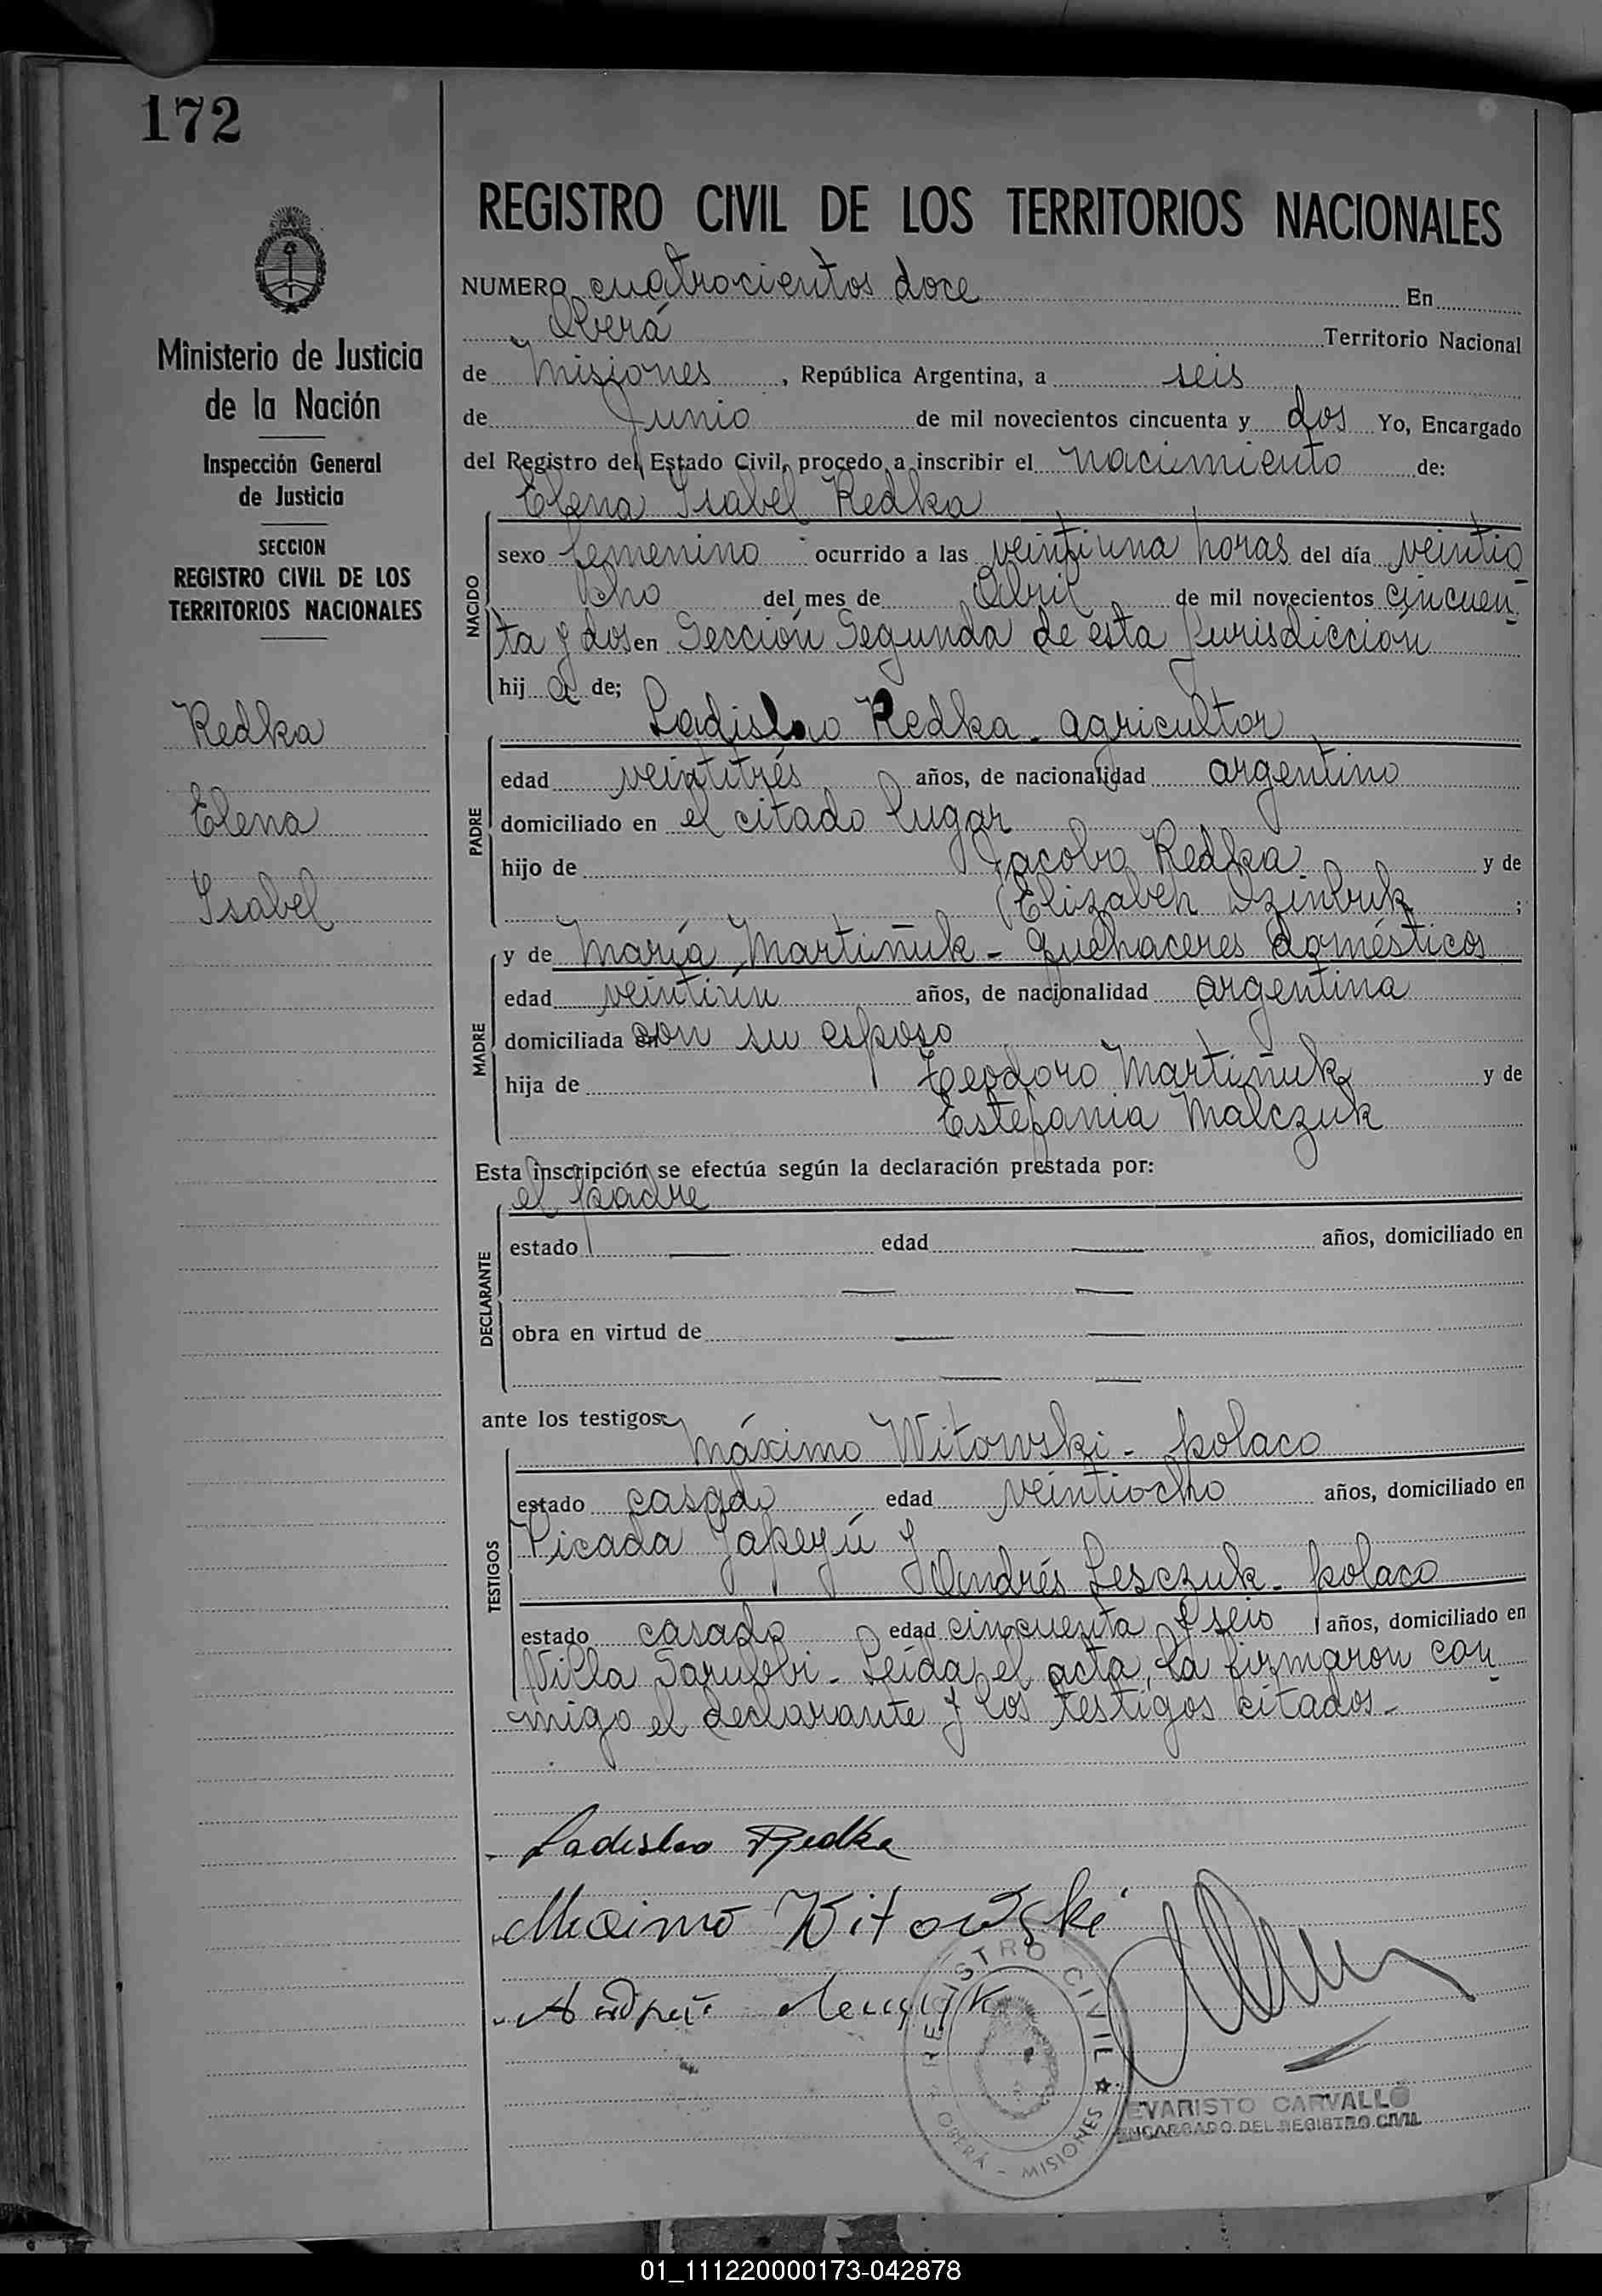 172
Ministerio de Justicia
de la Nación
Inspección General
de Justicia
SECCION
REGISTRO CIVIL DE LOS
TERRITORIOS NACIONALES
Redka
Elena
Isabel
REGISTRO CIVIL DE LOS TERRITORIOS NACIONALES
NUMERO cuatrocientos doce En
Oberá Territorio Nacional
de Misiones, República Argentina, a seis
de Junio de mil novecientos cincuenta y dos Yo, Encargado
del Registro del Estado Civil, procedo a inscribir el nacimiento de:
Elena Isabel Redka
NACIDO
sexo femenino ocurrido a las veintiuna horas del día veintio
cho del mes de Abril de mil novecientos cincuen
ta y dos en Sección Segunda de esta jurisdicción
hij a de;
Ladislao Redka - agricultor
PADRE
edad veintitrés años, de nacionalidad argentino
domiciliado en el citado lugar
hijo de Jacobo Redka y de
Elizabeh Dzinbuk ;
y de María Martiñuk - quehaceres domésticos
MADRE
edad veintiún años, de nacionalidad argentina
domiciliada con su esposo
hija de Teodoro Martiñuk y de
Estefania Malczuk
Esta inscripción se efectúa según la declaración prestada por:
el padre
DECLARANTE
estado — edad — años, domiciliado en
— —
obra en virtud de — —
— —
ante los testigos:
Máximo Witowski - polaco
TESTIGOS
estado casado edad veintiocho años, domiciliado en
Picada Yapeyú y
Andrés Lesczuk - polaco
estado casado edad cincuenta y seis años, domiciliado en
Villa Sarubbi - Leída el acta, la firmaron con
migo el declarante y los testigos citados.-
Ladislao Redka
Maximo Witowski
REGISTRO CIVIL
OBERÁ - MISIONES
EVARISTO CARVALLO
ENCARGADO DEL REGISTRO CIVIL
01_111220000173-042878